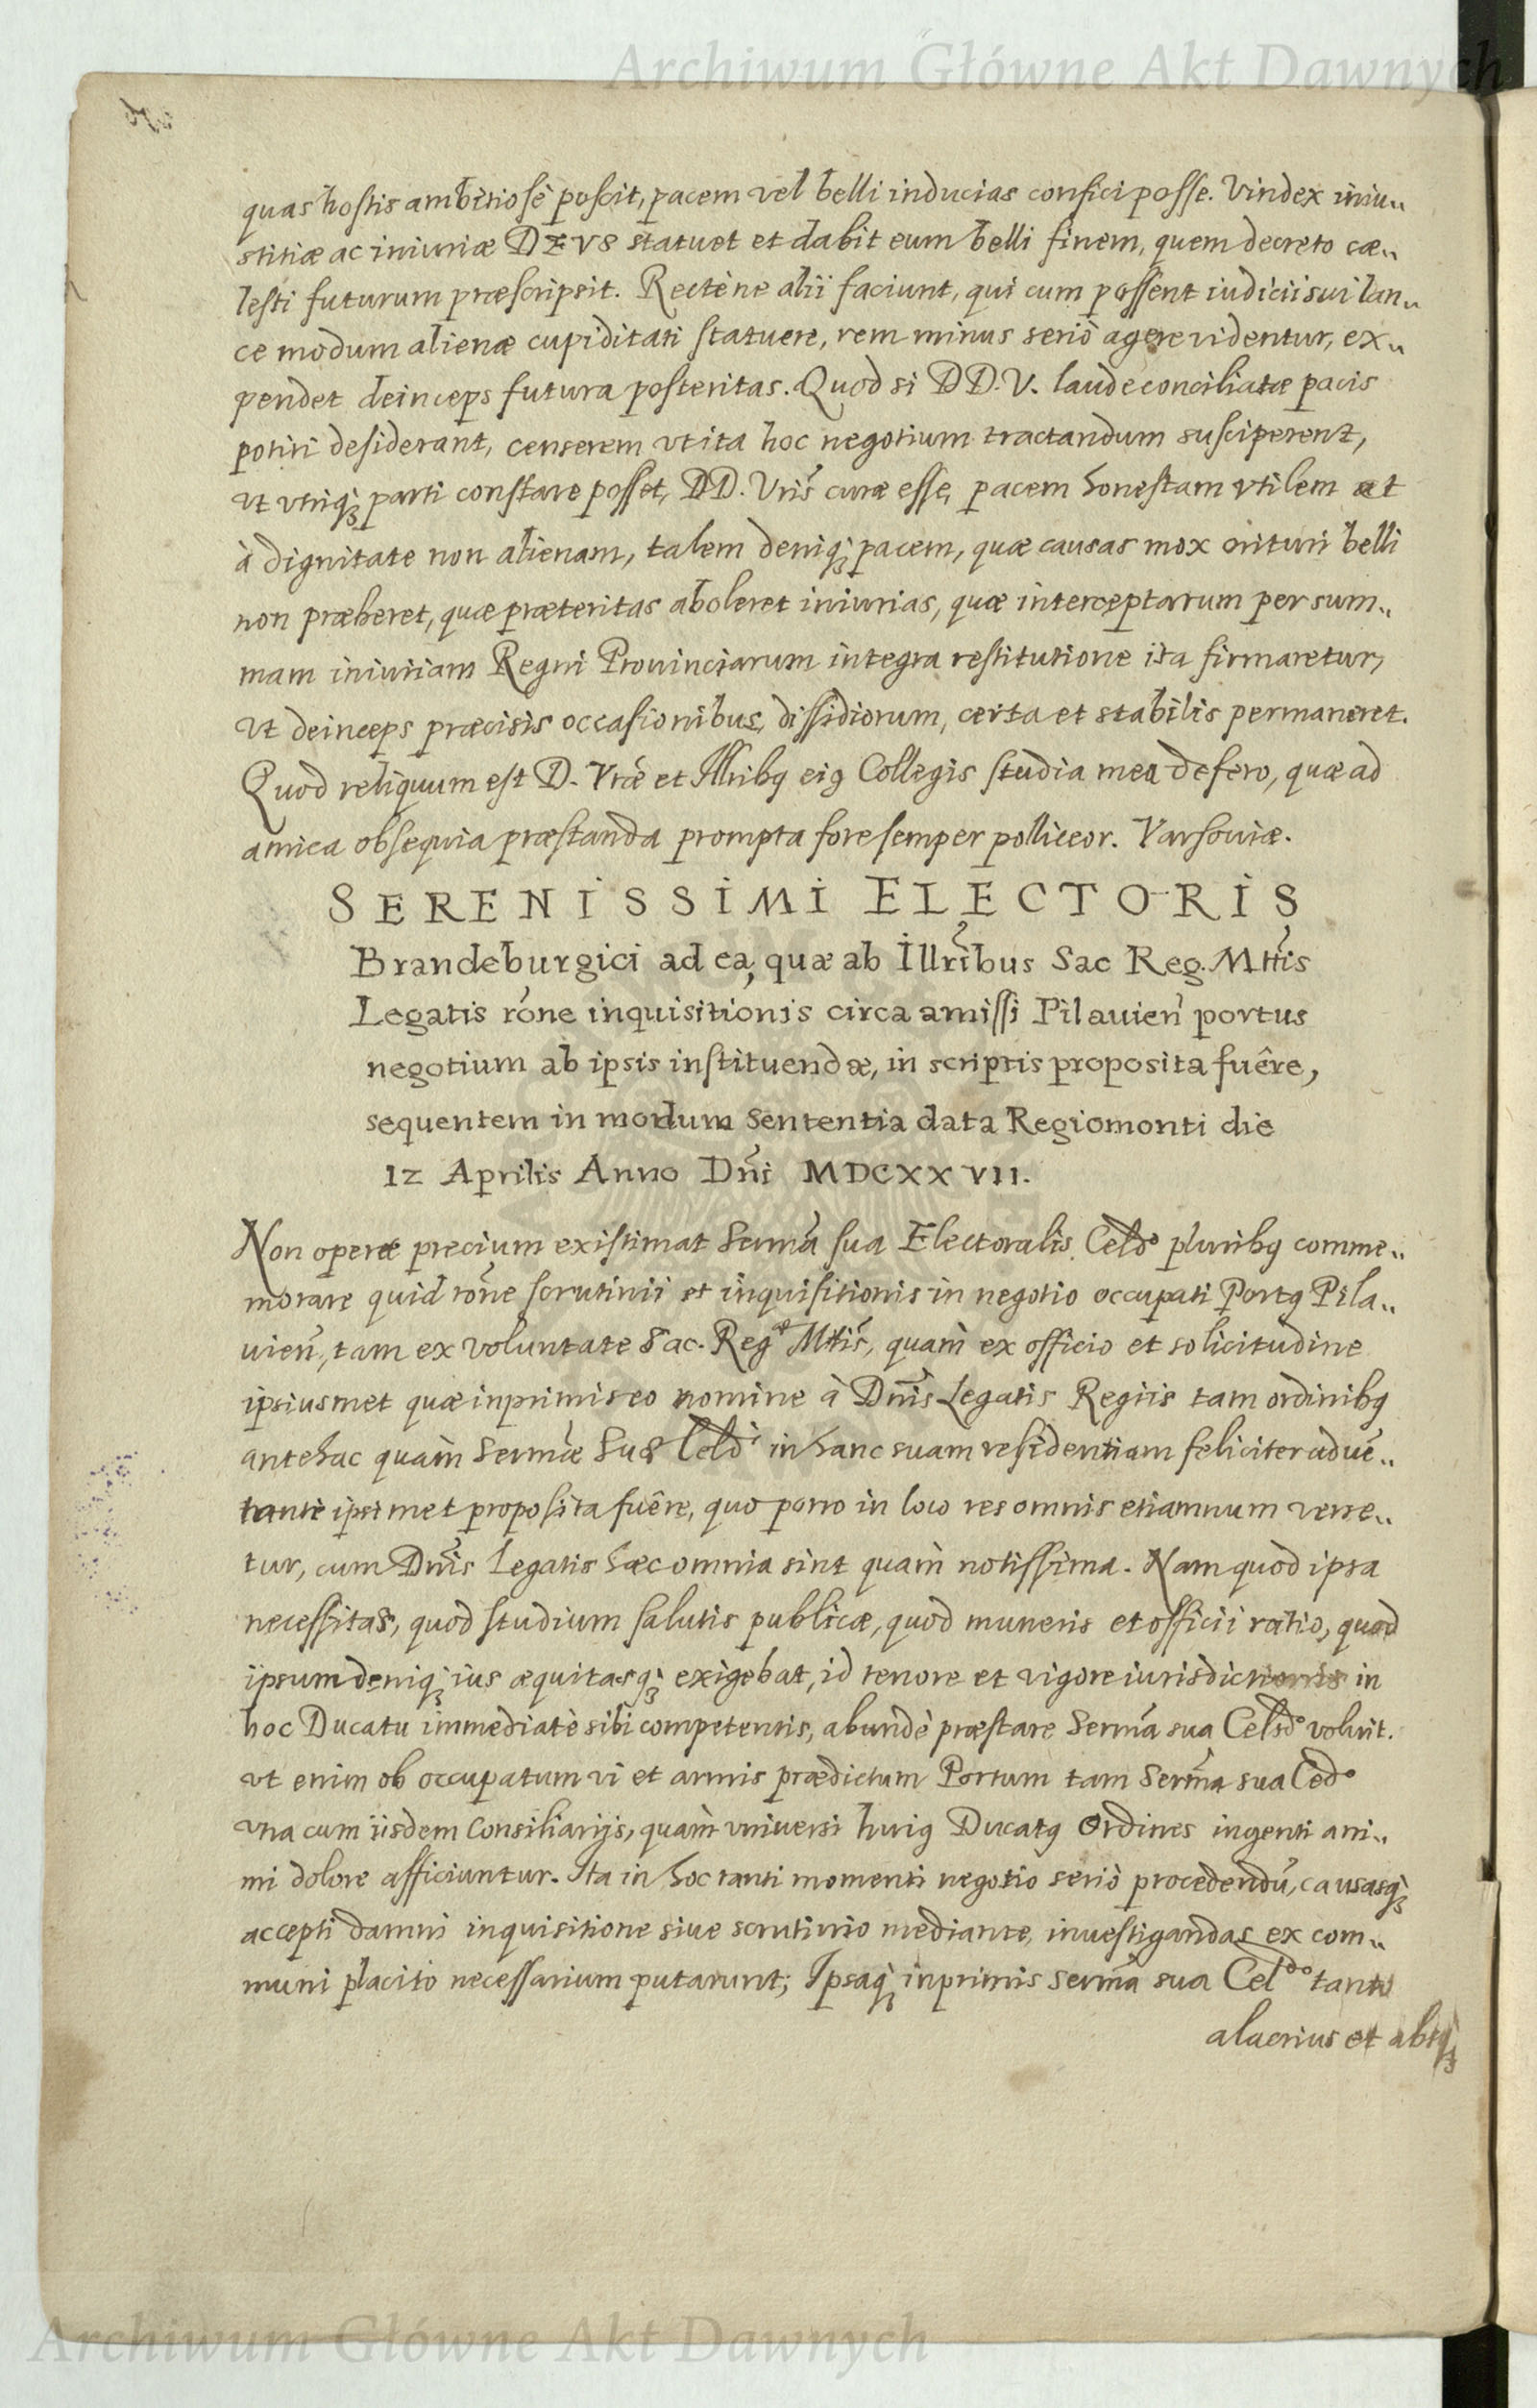 Archiwum Główne Akt Dawnych
quas hostis ambitiosè poscit, pacem vel belli inducias confici posse. Vindex iniu„
stitiæ ac iniuriæ DEVS statuet et dabit eum belli finem, quem decreto cæ„
lesti futurum præscripsit. Rectène alii faciunt, qui cum possent iudicii sui lan„
ce modum alienæ cupiditati statuere, rem minus seriò agere videntur, ex„
pendet deinceps futura posteritas. Quod si DD. V. laude conciliatæ pacis
potiri desiderant, censerem vt ita hoc negotium tractandum susciperent,
vt vtriq̀ꝫ parti constare posset, DD. Vris̃ curæ esse, pacem honestam vtilem et
à dignitate non alienam, talem deniq̀ꝫ pacem, quæ causas mox orituri belli
non præberet, quæ præteritas aboleret iniurias, quæ interceptarum per sum„
mam iniuriam Regni Prouinciarum integra restitutione ita firmaretur,
vt deinceps præcisis occasionibus, dissidiorum, certa et stabilis permaneret.
Quod reliquum est D. Vræ̃ et Illribꝯ eiꝯ Collegis studia mea defero, quæ ad
amica obsequia præstanda prompta fore semper polliceor. Varsouiæ.
SERENISSIMI ELECTORIS
Brandeburgici ad ea, quæ ab Illrĩbus Sac Reg. Mttĩs
Legatis rõne inquisitionis circa amissi Pilauieñ portus
negotium ab ipsis instituendæ, in scriptis proposita fuêre,
sequentem in modum sententia data Regiomonti die
12 Aprilis Anno Dñi MDCXXVII.
Non operæ precium existimat Sermã sua Electoralis Celsdo pluribꝯ comme„
morare quid rõne scrutinii et inquisitionis in negotio occupati Portꝯ Pila„
uieñ, tam ex voluntate Sac. Regæ Mttis̃, quàm ex officio et solicitudine
ipsiusmet quæ inprimis eo nomine à Dnĩs Legatis Regiis tam ordinibꝯ
antehac quàm Sermæ̃ Suæ Celsdi in hanc suam residentiam feliciter aduẽ„
tanti ipsimet proposita fuêre, quo porro in loco res omnis etiamnum verse„
tur, cum Dnĩs Legatis hæc omnia sint quàm notissima. Nam quod ipsa
necessitas, quod studium salutis publicæ, quod muneris et officii ratio, quod
ipsum deniq̀ꝫ ius æquitasq̀ꝫ exigebat, id tenore et vigore iurisdictionis in
hoc Ducatu immediatè sibi competentis, abundè præstare Sermã sua Celsdo voluit.
vt enim ob occupatum vi et armis prædictum Portum tam Sermã sua Celdo
vna cum iisdem Consiliarijs, quàm vniuersi huiꝯ Ducatꝯ Ordines ingenti ani„
mi dolore afficiuntur. Ita in hoc tanti momenti negotio seriò procedendũ, causasq̀ꝫ
accepti damni inquisitione siue scrutinio mediante, inuestigandas ex com„
muni placito necessarium putarunt; Ipsaq̀ꝫ inprimis Sermã sua Celsdo tantò
alacrius et absq̀ꝫ
Archiwum Główne Akt Dawnych